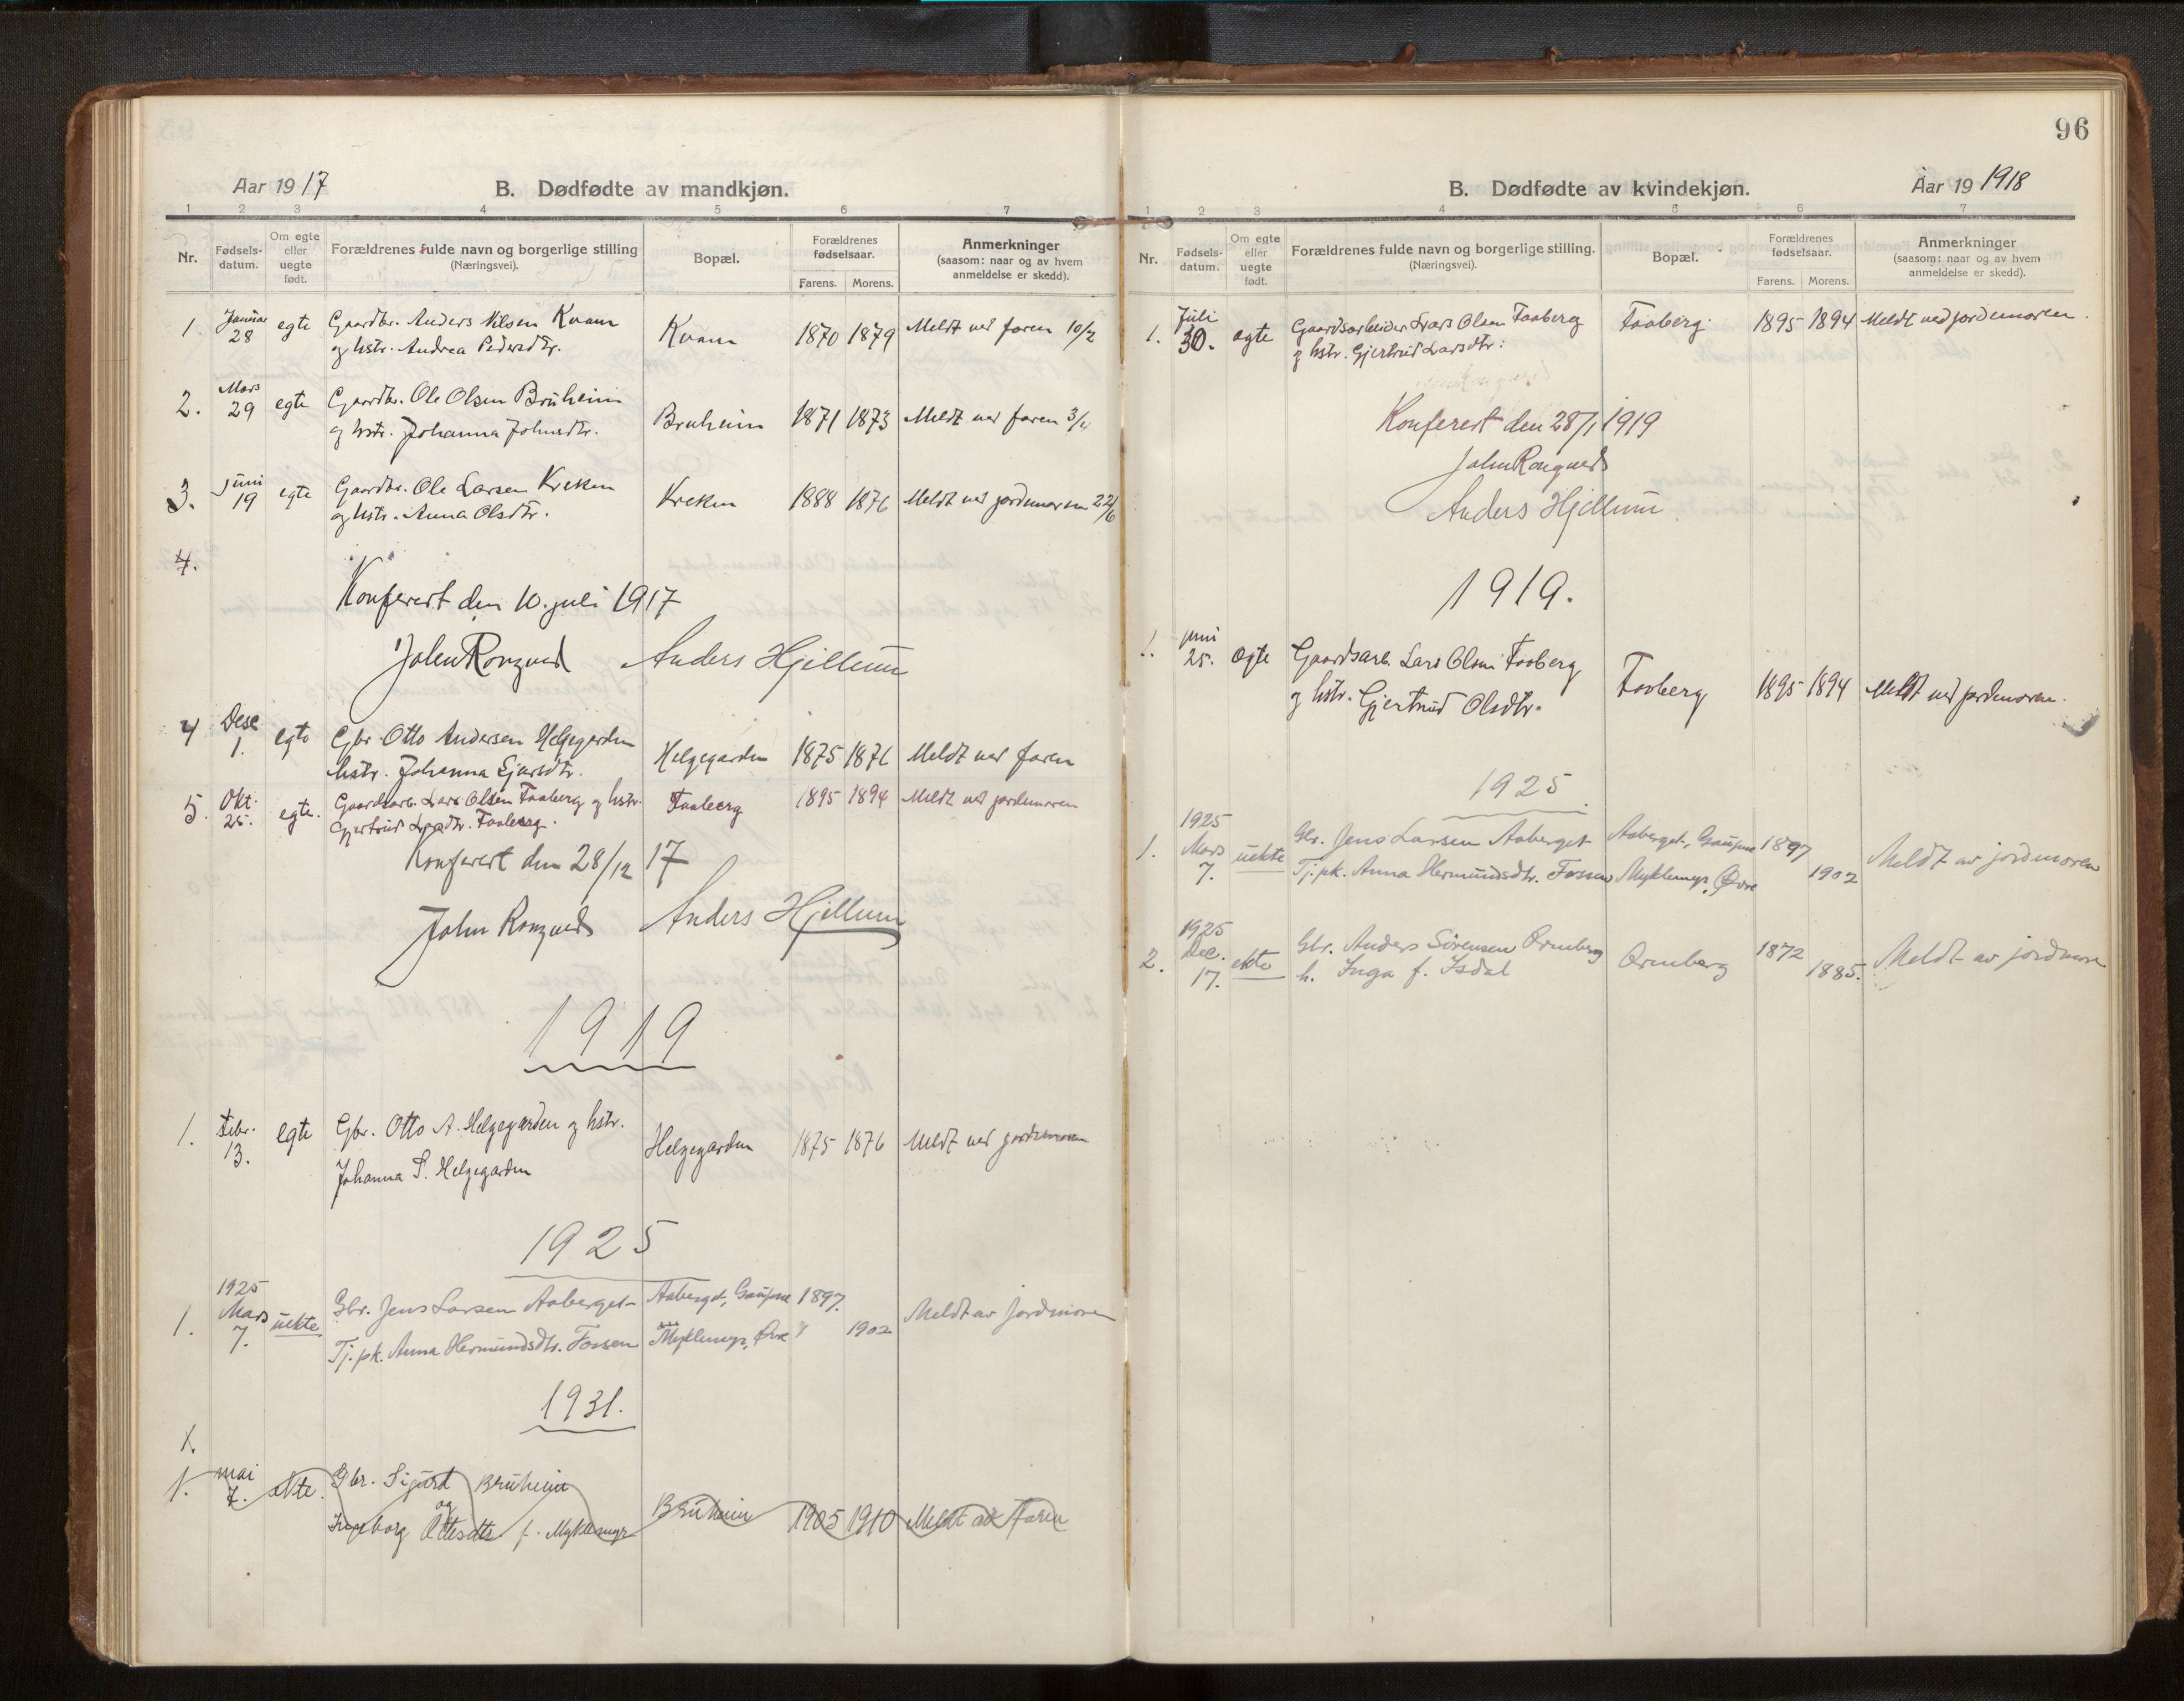 Aar 1917
B. Dødfødte av mandkjøn.
1 2 3 4 5 6 7
Nr.
Fødsels-datum.
Om egte eller uegte født.
Forældrenes fulde navn og borgerlige stilling
(Næringsvei).
Bopæl.
Forældrenes fødselsaar.
Farens. Morens.
Anmerkninger
(saasom: naar og av hvem
anmeldelse er skedd).
1. Januar 28 egte Gaardbr. Anders Nilsen Kvam Kvam 1870 1879 Meldt ved faren 10/2
og hstr. Andrea Pedersdtr.
2. Mars 29 egte Gaardbr. Ole Olsen Bruheim Bruheim 1871 1873 Meldt ved faren 3/4
og hstr. Johanna Johnsdtr.
3. juni 19 egte Gaardbr. Ole Larsen Kreken Kreken 1888 1876 Meldt ved jordemoren 22/6
og hstr. Anna Olsdtr.
4.
Konferert den 10. juli 1917
John Rongved Anders Hjellum
4 Dese 1. egte Gbr. Otto Andersen Helgegarden Helgegarden 1875 1876 Meldt ved faren
hstr. Johanna Sjursdtr.
5. Okt. 25. egte. Gaardsarb. Lars Olsen Faaberg og hstr. Faaberg 1895 1894 Meldt ved jordemoren
Gjertrud Larsdtr. Faaberg.
Konferert den 28/12 17
John Rongved Anders Hjellum
1919
1. Febr. 13. egte Gbr. Otto A. Helgegarden og hstr. Helgegarden 1875 1876 Meldt ved jordemoren
Johanna S. Helgegarden
1925
1. 1925 Mars 7. uekte Gbr. Jens Larsen Aaberget Aaberget, Gaupne 1897. Meldt av jordmoren
Tj. pk. Anna Hermundsdtr. Fossen Myklemyr, Øvre 1902
1931.
1.
1. mai 7. ekte. Gbr. Sigurd Bruheim Bruheim 1905 1910 Meldt av Faren
og
Ingeborg Ottesdtr f. Myklemyr
96
B. Dødfødte av kvindekjøn.
Aar 19 1918
1 2 3 4 5 6 7
Nr.
Fødsels-datum.
Om egte eller uegte født.
Forældrenes fulde navn og borgerlige stilling.
(Næringsvei).
Bopæl.
Forældrenes fødselsaar.
Farens. Morens.
Anmerkninger
(saasom: naar og av hvem
anmeldelse er skedd).
1. Juli 30. egte Gaardsarbeider Lars Olsen Faaberg Faaberg. 1895 1894 Meldt ved jordemoren.
og hstr. Gjertrud Larsdtr:
Konferert den 28/1 1919
John Rongved
Anders Hjellum
1919.
1. juni 25. egte Gaardsarb. Lars Olsen Faaberg Faaberg 1895 1894 Meldt ved jordemoren.
og hstr. Gjertrud Olsdtr.
1925.
1. 1925 Mars 7. uekte Gbr. Jens Larsen Aaberget Aaberget, Gaupne 1897 Meldt av jordmoren
Tj. pk. Anna Hermundsdtr. Fossen Myklemyr, Øvre 1902
2. 1925 Dec. 17. ekte Gbr. Anders Sørensen Ormberg Ormberg 1872 Meldt av jordmor
h. Inga f. Isdal 1885.